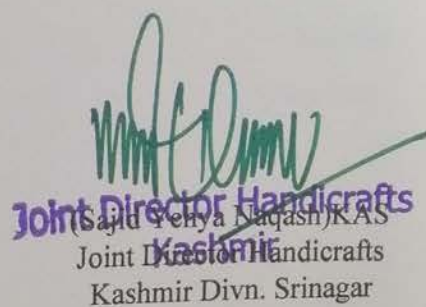 Joint Director Handicrafts
(Sajid Yehya Naqash)KAS
Kashmir
Joint Director Handicrafts
Kashmir Divn. Srinagar